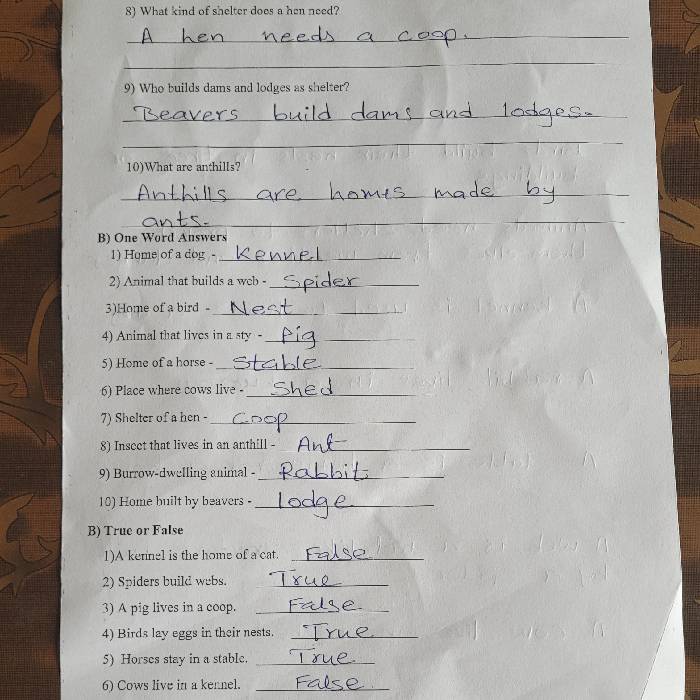 8) What kind of shelter does a hen need?
A hen needs a coop.
9) Who builds dams and lodges as shelter?
Beavers build dams and lodges.
10)What are anthills?
Anthills are homes made by
ants.
B) One Word Answers
1) Home of a dog - Kennel
2) Animal that builds a web - Spider
3)Home of a bird - Nest
4) Animal that lives in a sty - Pig
5) Home of a horse - Stable
6) Place where cows live - Shed
7) Shelter of a hen - Coop
8) Insect that lives in an anthill - Ant
9) Burrow-dwelling animal - Rabbit
10) Home built by beavers - lodge
B) True or False
1)A kennel is the home of a cat. False
2) Spiders build webs. True
3) A pig lives in a coop. False
4) Birds lay eggs in their nests. True
5) Horses stay in a stable. True
6) Cows live in a kennel. False